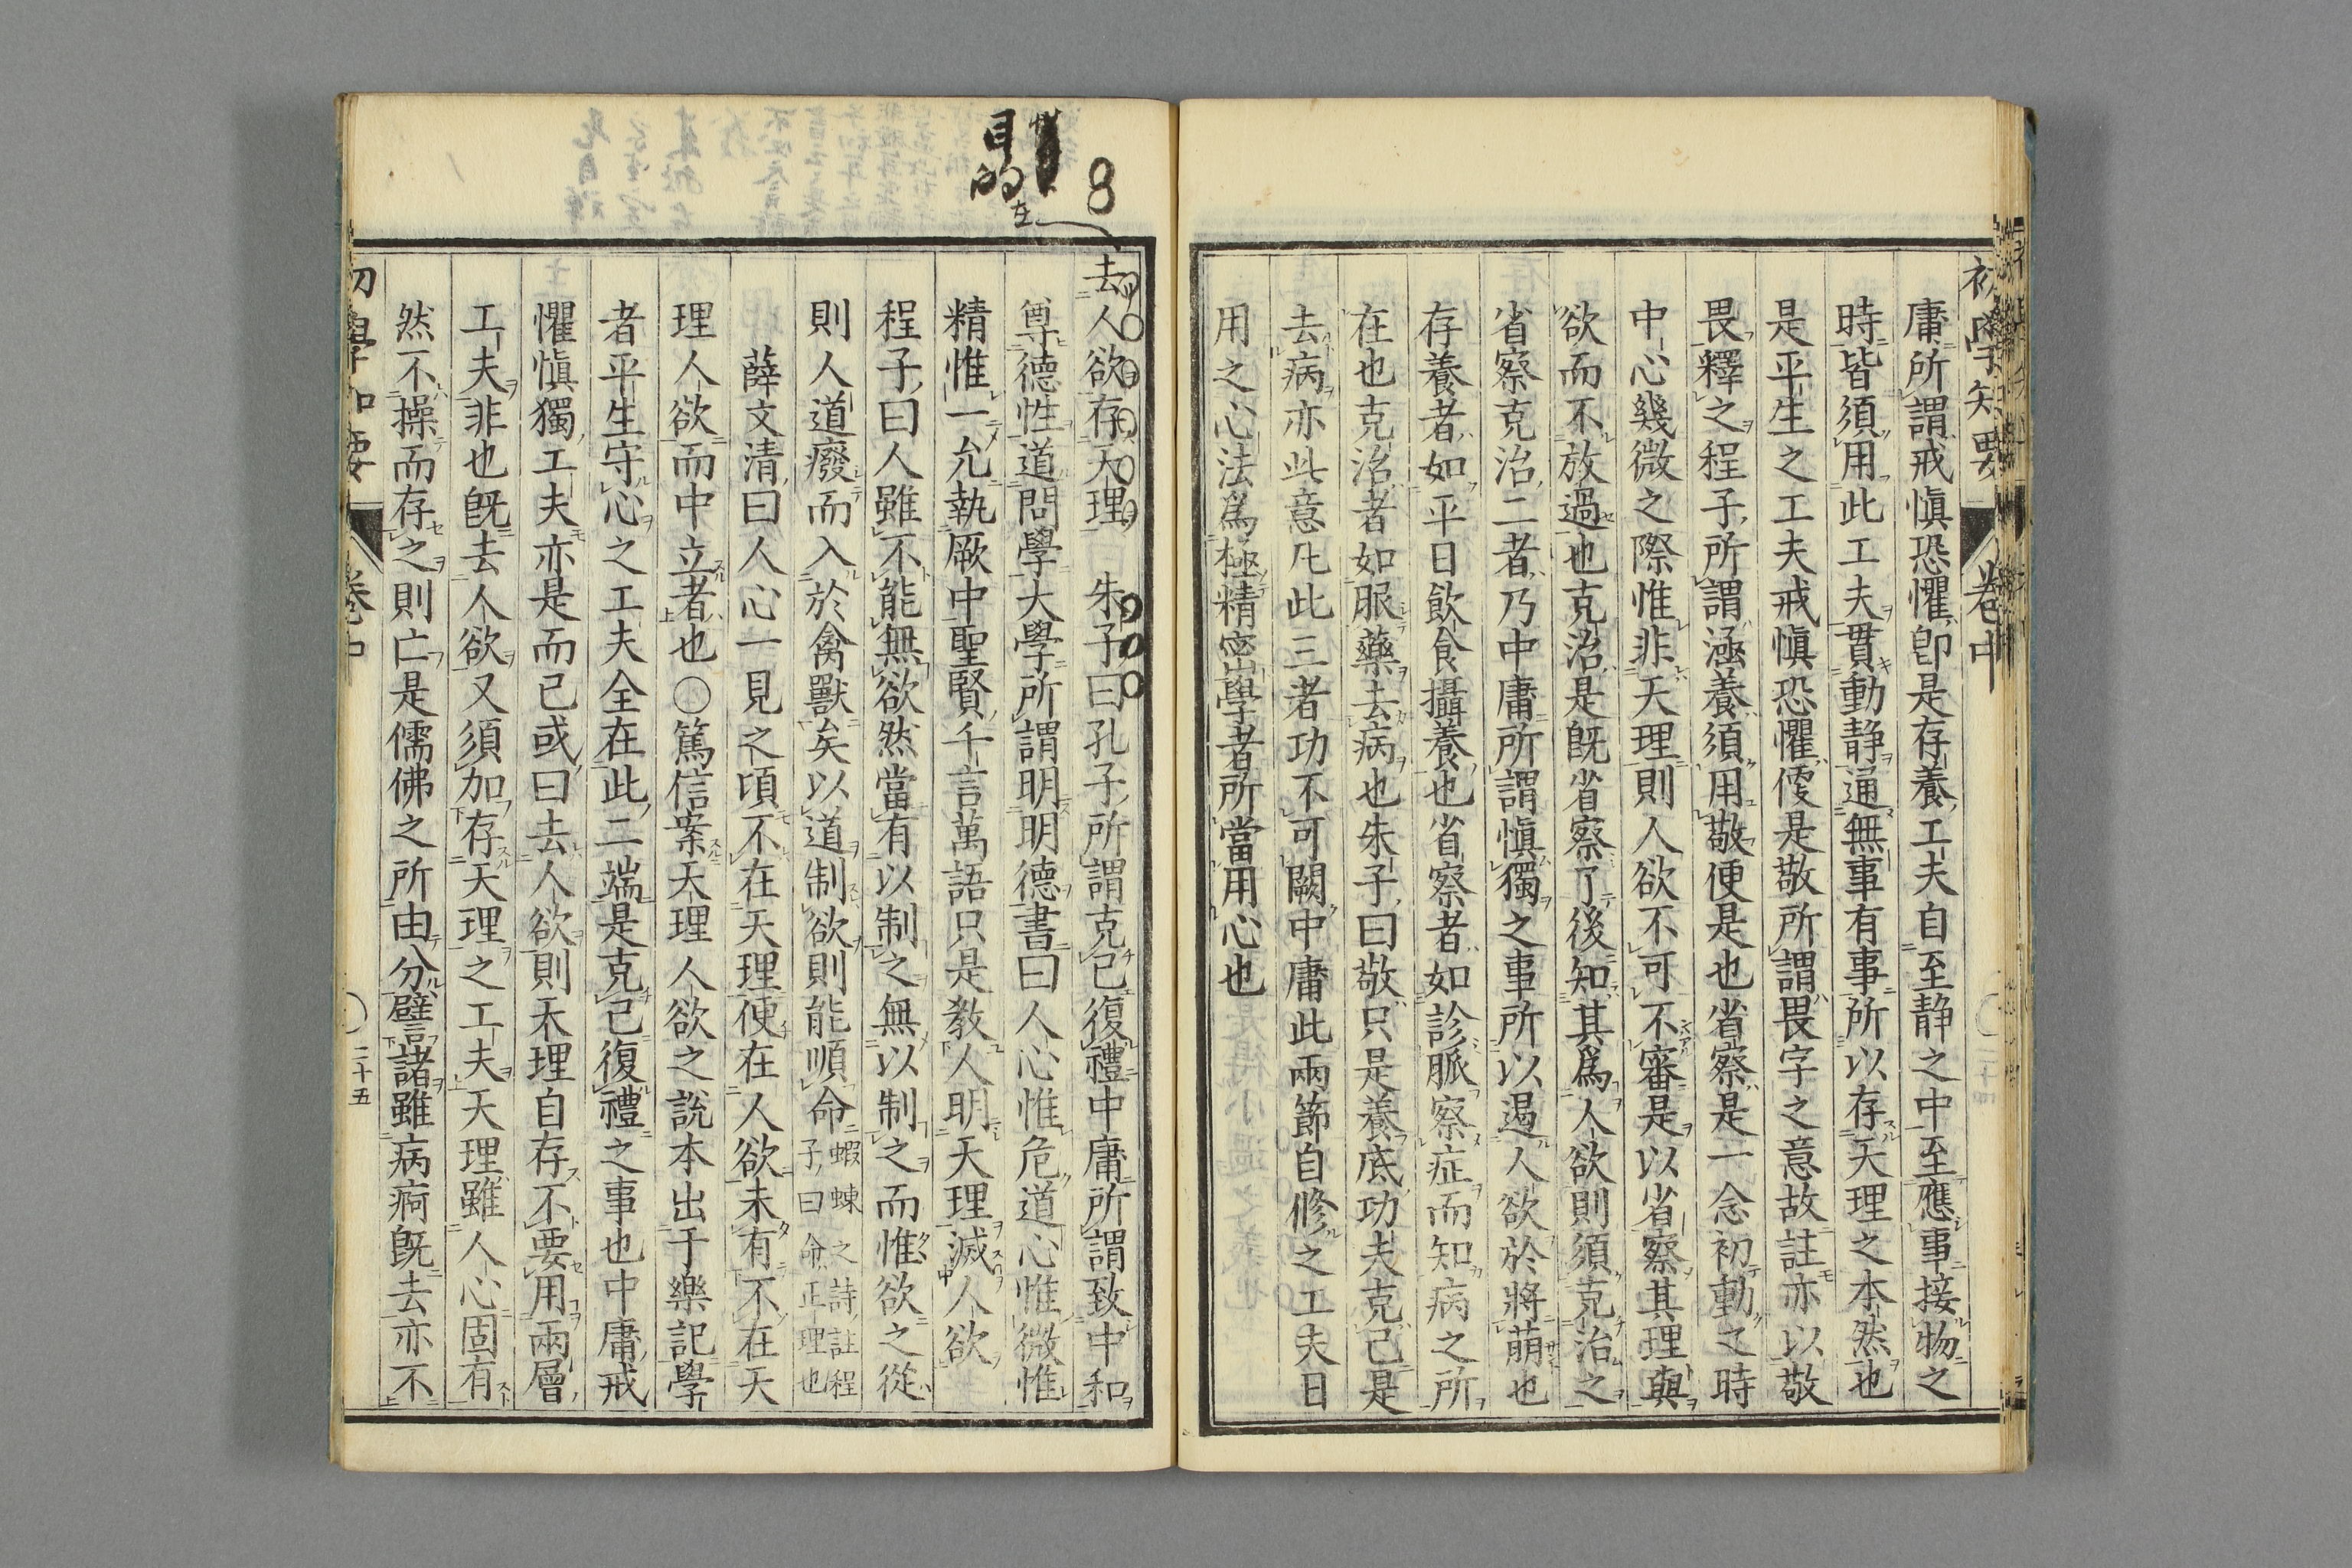 初學知要
卷中
庸所謂戒愼恐懼卽是存養工夫自至静之中至應事接物之
時皆須用此工夫貫動静通無事有事所以存天理之本然也
是平生之工夫戒愼恐懼便是敬所謂畏字之意故註亦以敬
畏釋之程子所謂涵養須用敬便是也省察是一念初動之時
中心幾微之際惟非天理則人欲不可不審是以省察其理與
欲而不放過也克治是旣省察了後知其爲人欲則須克治之
省察克治二者乃中庸所謂愼獨之事所以遏人欲於將萌也
存養者如平日飮食攝養也省察者如診脈察症而知病之所
在也克治者如服藥去病也朱子曰敬只是養底功夫克己是
去病亦此意凡此三者功不可闕中庸此兩節自修之工夫日
用之心法爲極精密學者所當用心也
8
去人欲存天理　朱子曰孔子所謂克己復禮中庸所謂致中和
尊德性道問學大學所謂明明德書曰人心惟危道心惟微惟
精惟一允執厥中聖賢千言萬語只是敎人明天理滅人欲
程子曰人雖不能無欲然當有以制之無以制之而惟欲之從
則人道癈而入於禽獸矣以道制欲則能順命蝦蝀之詩註程子曰命正理也
薛文清曰人心一見之頃不在天理便在人欲未有不在天
理人欲而中立者也〇篤信案天理人欲之說本出于樂記學
者平生守心之工夫全在此二端是克己復禮之事也中庸戒
懼愼獨工夫亦是而已或曰去人欲則天理自存不要用兩層
工夫非也旣去人欲又須加存天理之工夫天理雖人心固有
然不操而存之則亡是儒佛之所由分譬諸雖病痾旣去亦不
初學知要
卷中
二十五